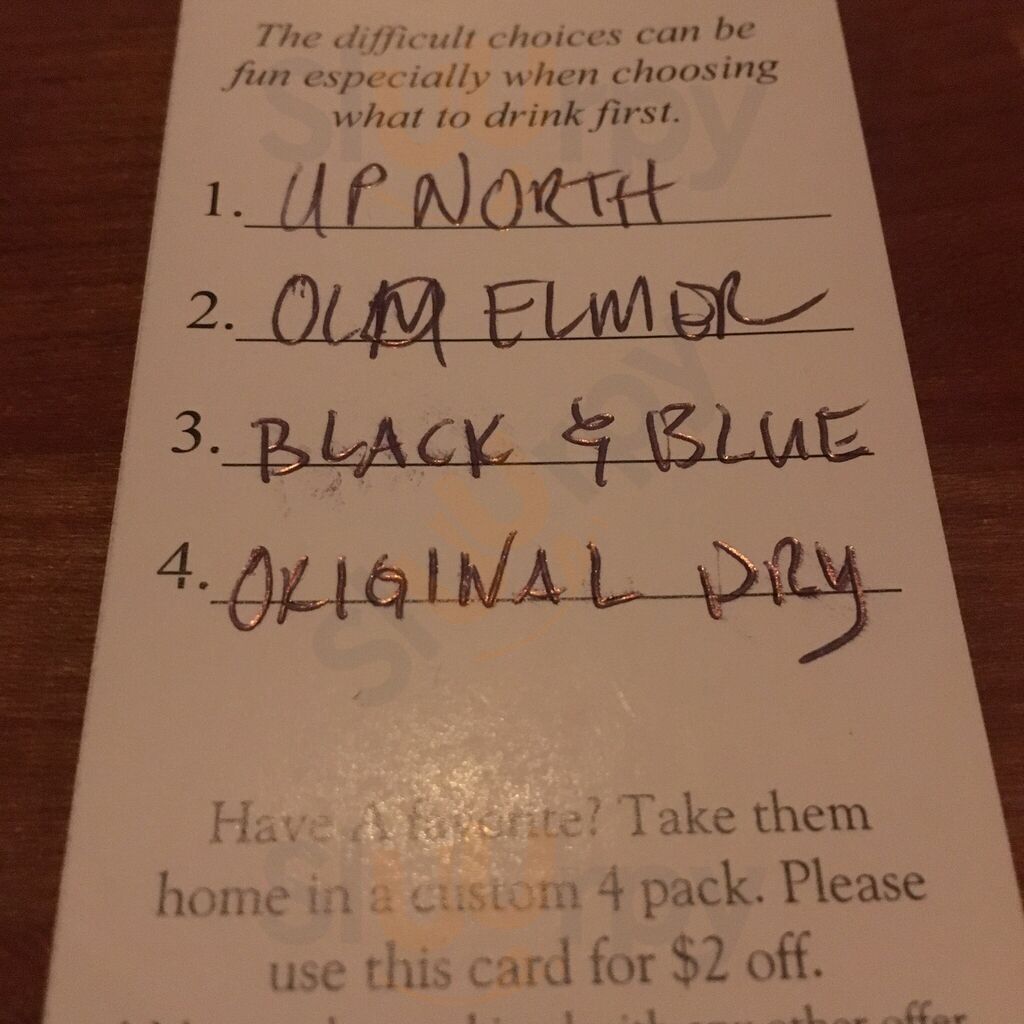 The difficult choices can be
fun especially when choosing
what to drink first.
1. UP NORTH
2. ELMER
3. BLACK & BLUE
4. ORIGINAL DRY
Have A favorite? Take them
home in a custom 4 pack. Please
use this card for $2 off.
with any other offer
Sluurpy
Sluurpy
Sluurpy
Sluurpy